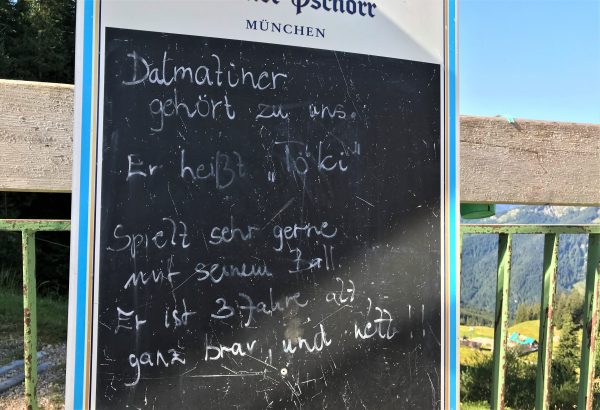 Pschorr
MÜNCHEN
Dalmatiner
gehört zu uns.
Er heißt „Töki"
Spielt sehr gerne
mit seinem Ball
Er ist 3 Jahre alt,
ganz brav, und nett!!